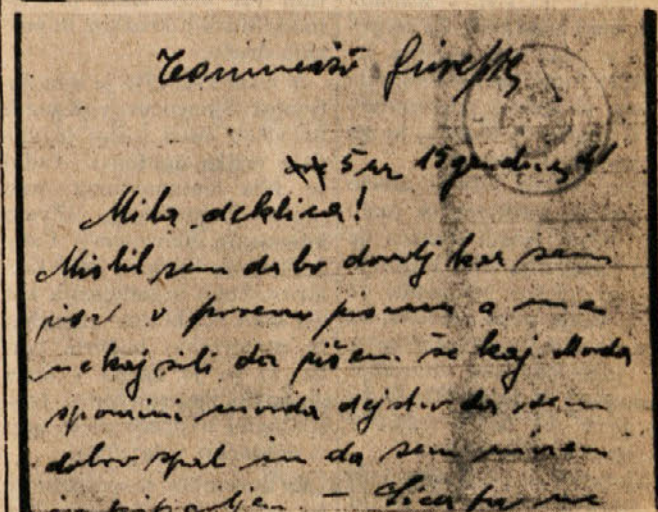 Tommasič Giuseppe
5 ur 15
Mila deklica!
Mislil sem da bo dovolj kar sem
pisal v prvem pismu a me
nekaj sili da pišem še kaj. Morda
spomini morda dejstvo da sem
dobro spal in da sem miren
in